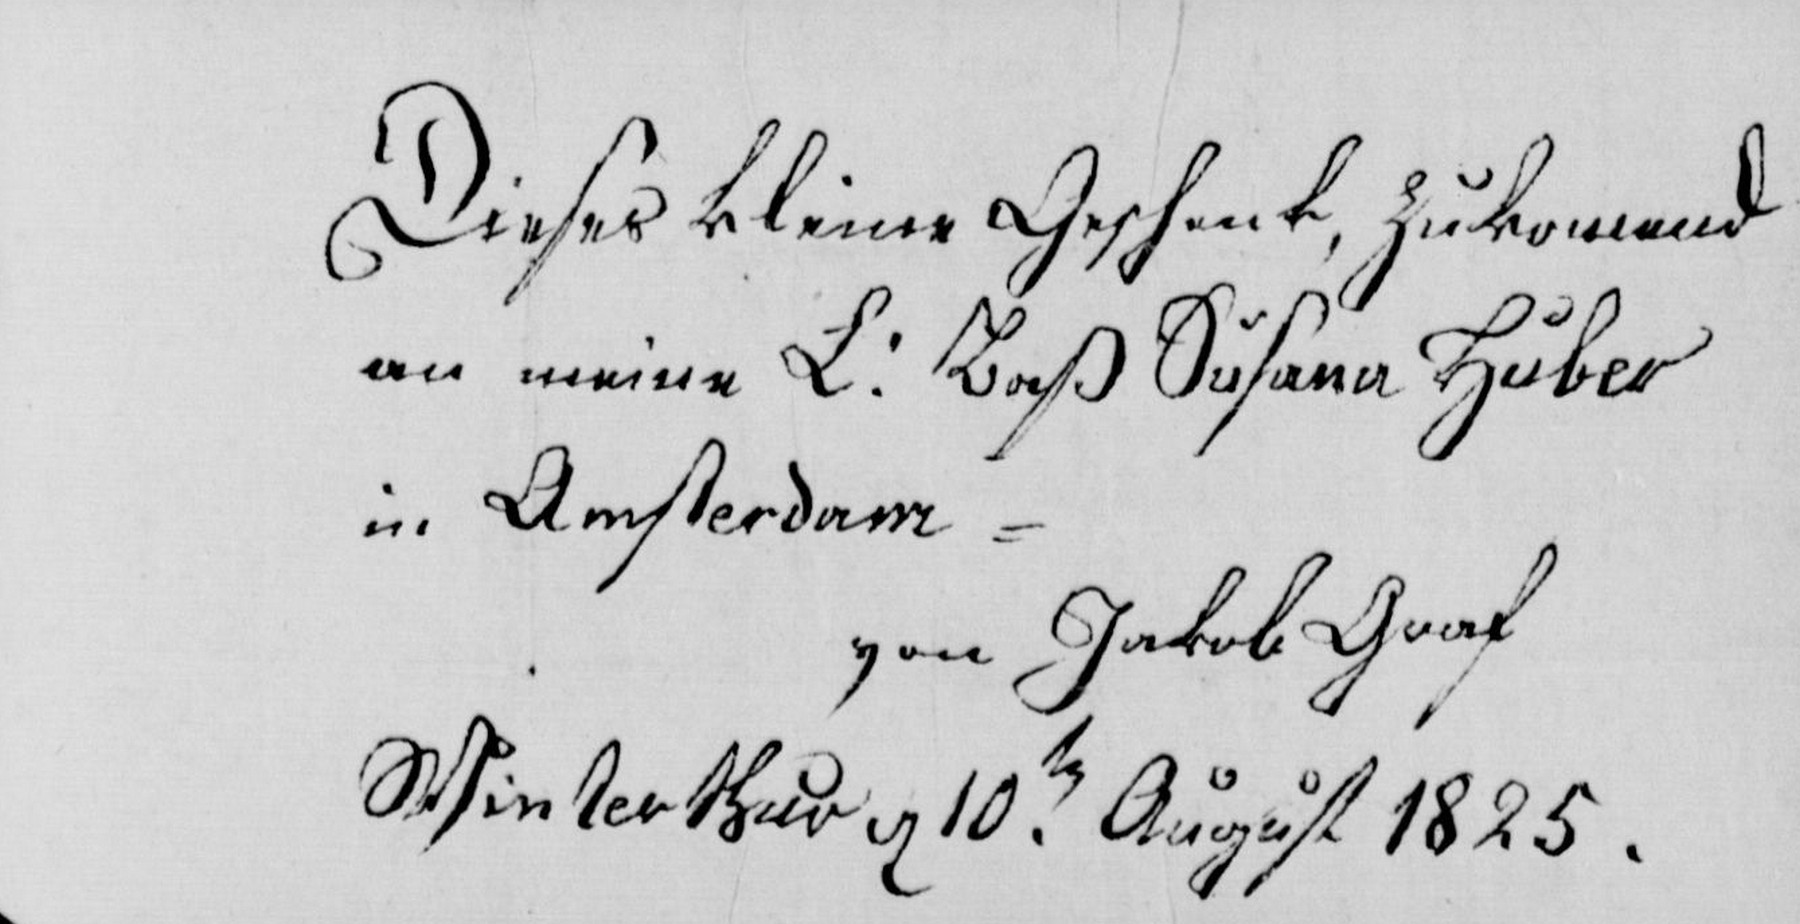 Dieses kleine Geschenk, zukomend
an meine L: Baß Susana Huber
in Amsterdam =
von Jakob Graf
Winterthur 10.tn August 1825.